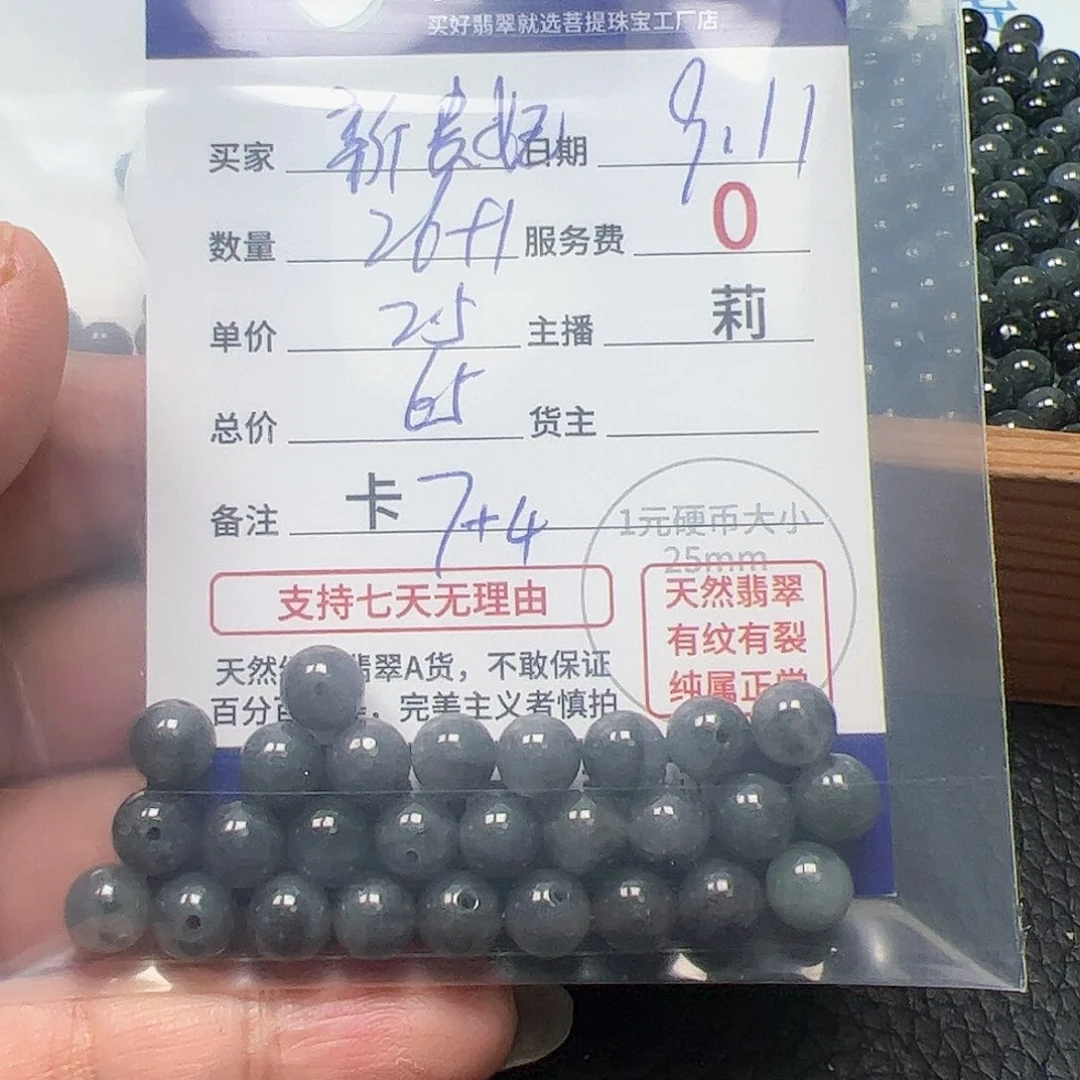 买好翡翠就选菩提珠宝工厂店
买家 新贵妃 日期 9.11
数量 26+1 服务费 0
单价 2.5 主播 莉
总价 65 货主
备注 卡 7+4
1元硬币大小
25mm
支持七天无理由
天然翡翠
有纹有裂
纯属正常
天然 翡翠A货，不敢保证
百分百 ，完美主义者慎拍